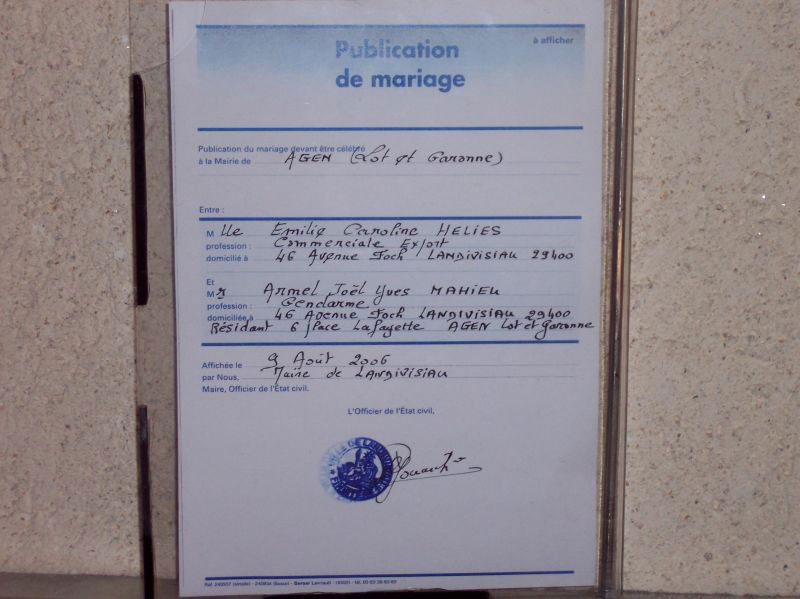 à afficher
Publication
de mariage
Publication du mariage devant être célébré
à la Mairie de AGEN (Lot et Garonne)
Entre :
Mlle Emilie Caroline HELIES
profession : Commerciale Export
domicilié à 46 Avenue Foch LANDIVISIAU 29400
Et
Mr Armel Joël Yves MAHIEU
profession : Gendarme
domiciliée à 46 Avenue Foch LANDIVISIAU 29400
Résidant 6 place Lafayette AGEN Lot et Garonne
Affichée le 9 Août 2006
par Nous, Mairie de LANDIVISIAU
Maire, Officier de l'État civil.
L'Officier de l'État civil,
VILLE DE